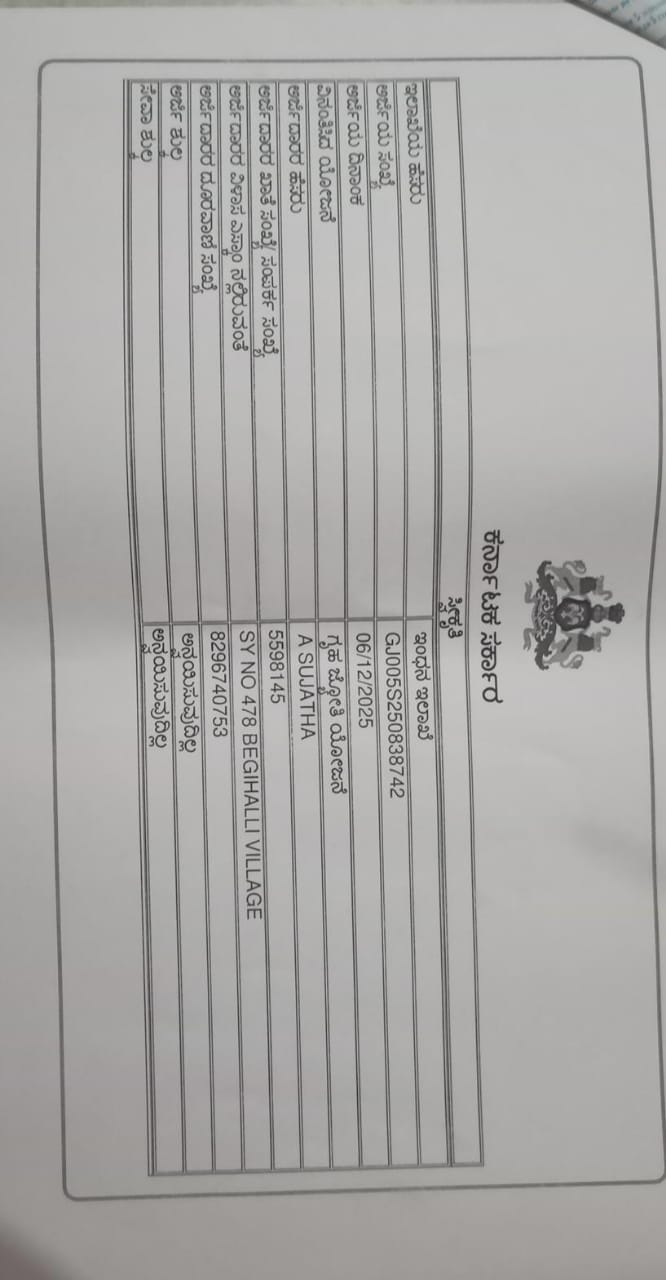 ಕರ್ನಾಟಕ ಸರ್ಕಾರ
ಸ್ವೀಕೃತಿ
ಇಲಾಖೆಯ ಹೆಸರು ಇಂಧನ ಇಲಾಖೆ
ಅರ್ಜಿಯ ಸಂಖ್ಯೆ GJ005S250838742
ಅರ್ಜಿಯ ದಿನಾಂಕ 06/12/2025
ವಿನಂತಿಸಿದ ಯೋಜನೆ ಗೃಹ ಜ್ಯೋತಿ ಯೋಜನೆ
ಅರ್ಜಿದಾರರ ಹೆಸರು A SUJATHA
ಅರ್ಜಿದಾರರ ಖಾತೆ ಸಂಖ್ಯೆ/ ಸಂಪರ್ಕ ಸಂಖ್ಯೆ 5598145
ಅರ್ಜಿದಾರರ ವಿಳಾಸ ಎಸ್ಕಾಂ ನಲ್ಲಿರುವಂತೆ SY NO 478 BEGIHALLI VILLAGE
ಅರ್ಜಿದಾರರ ದೂರವಾಣಿ ಸಂಖ್ಯೆ 8296740753
ಅರ್ಜಿ ಶುಲ್ಕ ಅನ್ವಯಿಸುವುದಿಲ್ಲ
ಸೇವಾ ಶುಲ್ಕ ಅನ್ವಯಿಸುವುದಿಲ್ಲ